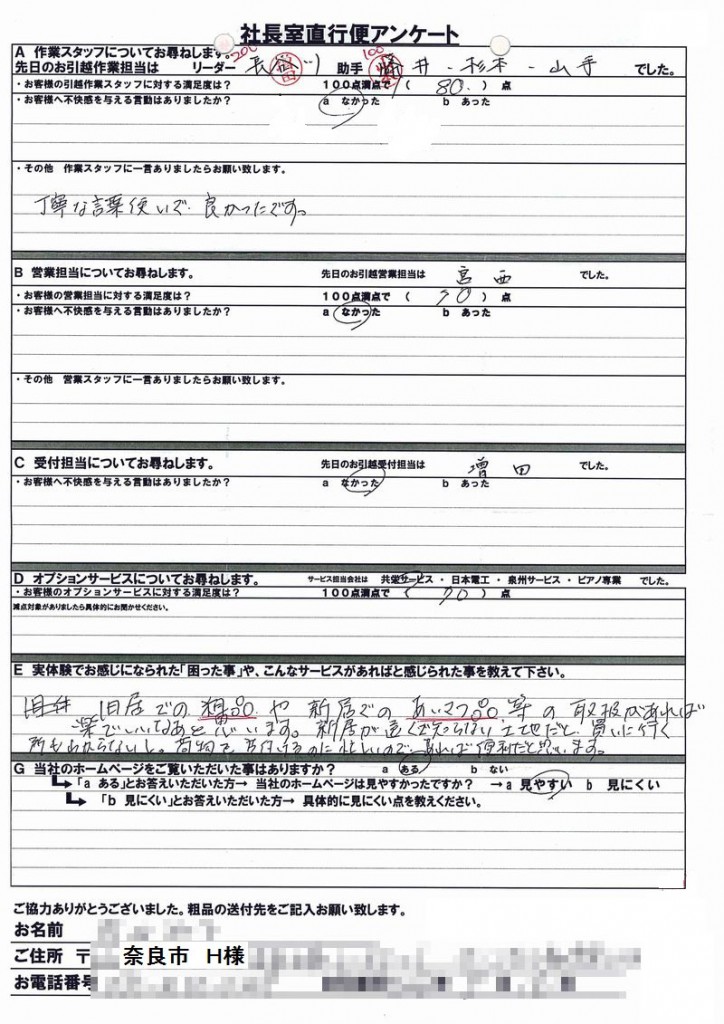 社長室直行便アンケート
A 作業スタッフについてお尋ねします。 200 100
先日のお引越作業担当は リーダー 長谷川 助手 井・杉本・山手 でした。
・お客様の引越作業スタッフに対する満足度は? 100点満点で ( 80 ) 点
・お客様へ不快感を与える言動はありましたか? a なかった b あった
・その他 作業スタッフに一言ありましたらお願い致します。
丁寧な言葉使いで良かったです。
B 営業担当についてお尋ねします。 先日のお引越営業担当は 宮西 でした。
・お客様の営業担当に対する満足度は? 100点満点で ( 90 ) 点
・お客様へ不快感を与える言動はありましたか? a なかった b あった
・その他 営業スタッフに一言ありましたらお願い致します。
C 受付担当についてお尋ねします。 先日のお引越受付担当は 増田 でした。
・お客様へ不快感を与える言動はありましたか? a なかった b あった
D オプションサービスについてお尋ねします。 サービス担当会社は 共栄サービス ・ 日本電工 ・ 泉州サービス ・ ピアノ専業 でした。
・お客様のオプションサービスに対する満足度は? 100点満点で ( 70 ) 点
減点対象がありましたら具体的にお聞かせください。
E 実体験でお感じになられた「困った事」や、こんなサービスがあればと感じられた事を教えて下さい。
旧居での粗品や新居でのあいさつ品等の取扱があれば
楽でいいなあと思います。新居が遠くで知らない土地だと、買いに行く
所もわからないし。荷物を片付けるのに忙しいので、あれば便利だと思います。
G 当社のホームページをご覧いただいた事はありますか? a ある b ない
「a ある」とお答えいただいた方→ 当社のホームページは見やすかったですか? →a 見やすい b 見にくい
「b 見にくい」とお答えいただいた方→ 具体的に見にくい点を教えください。
ご協力ありがとうございました。粗品の送付先をご記入お願い致します。
お名前
ご住所 〒 奈良市 H様
お電話番号